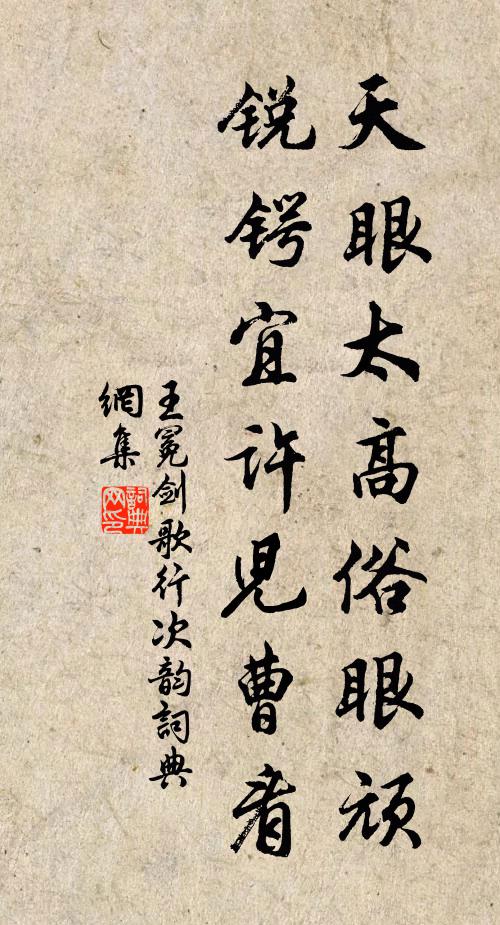 天眼太高俗眼頑
锐锷宜许児曹看
王冕剑歌行次韵詞典
網集
詞典
网印